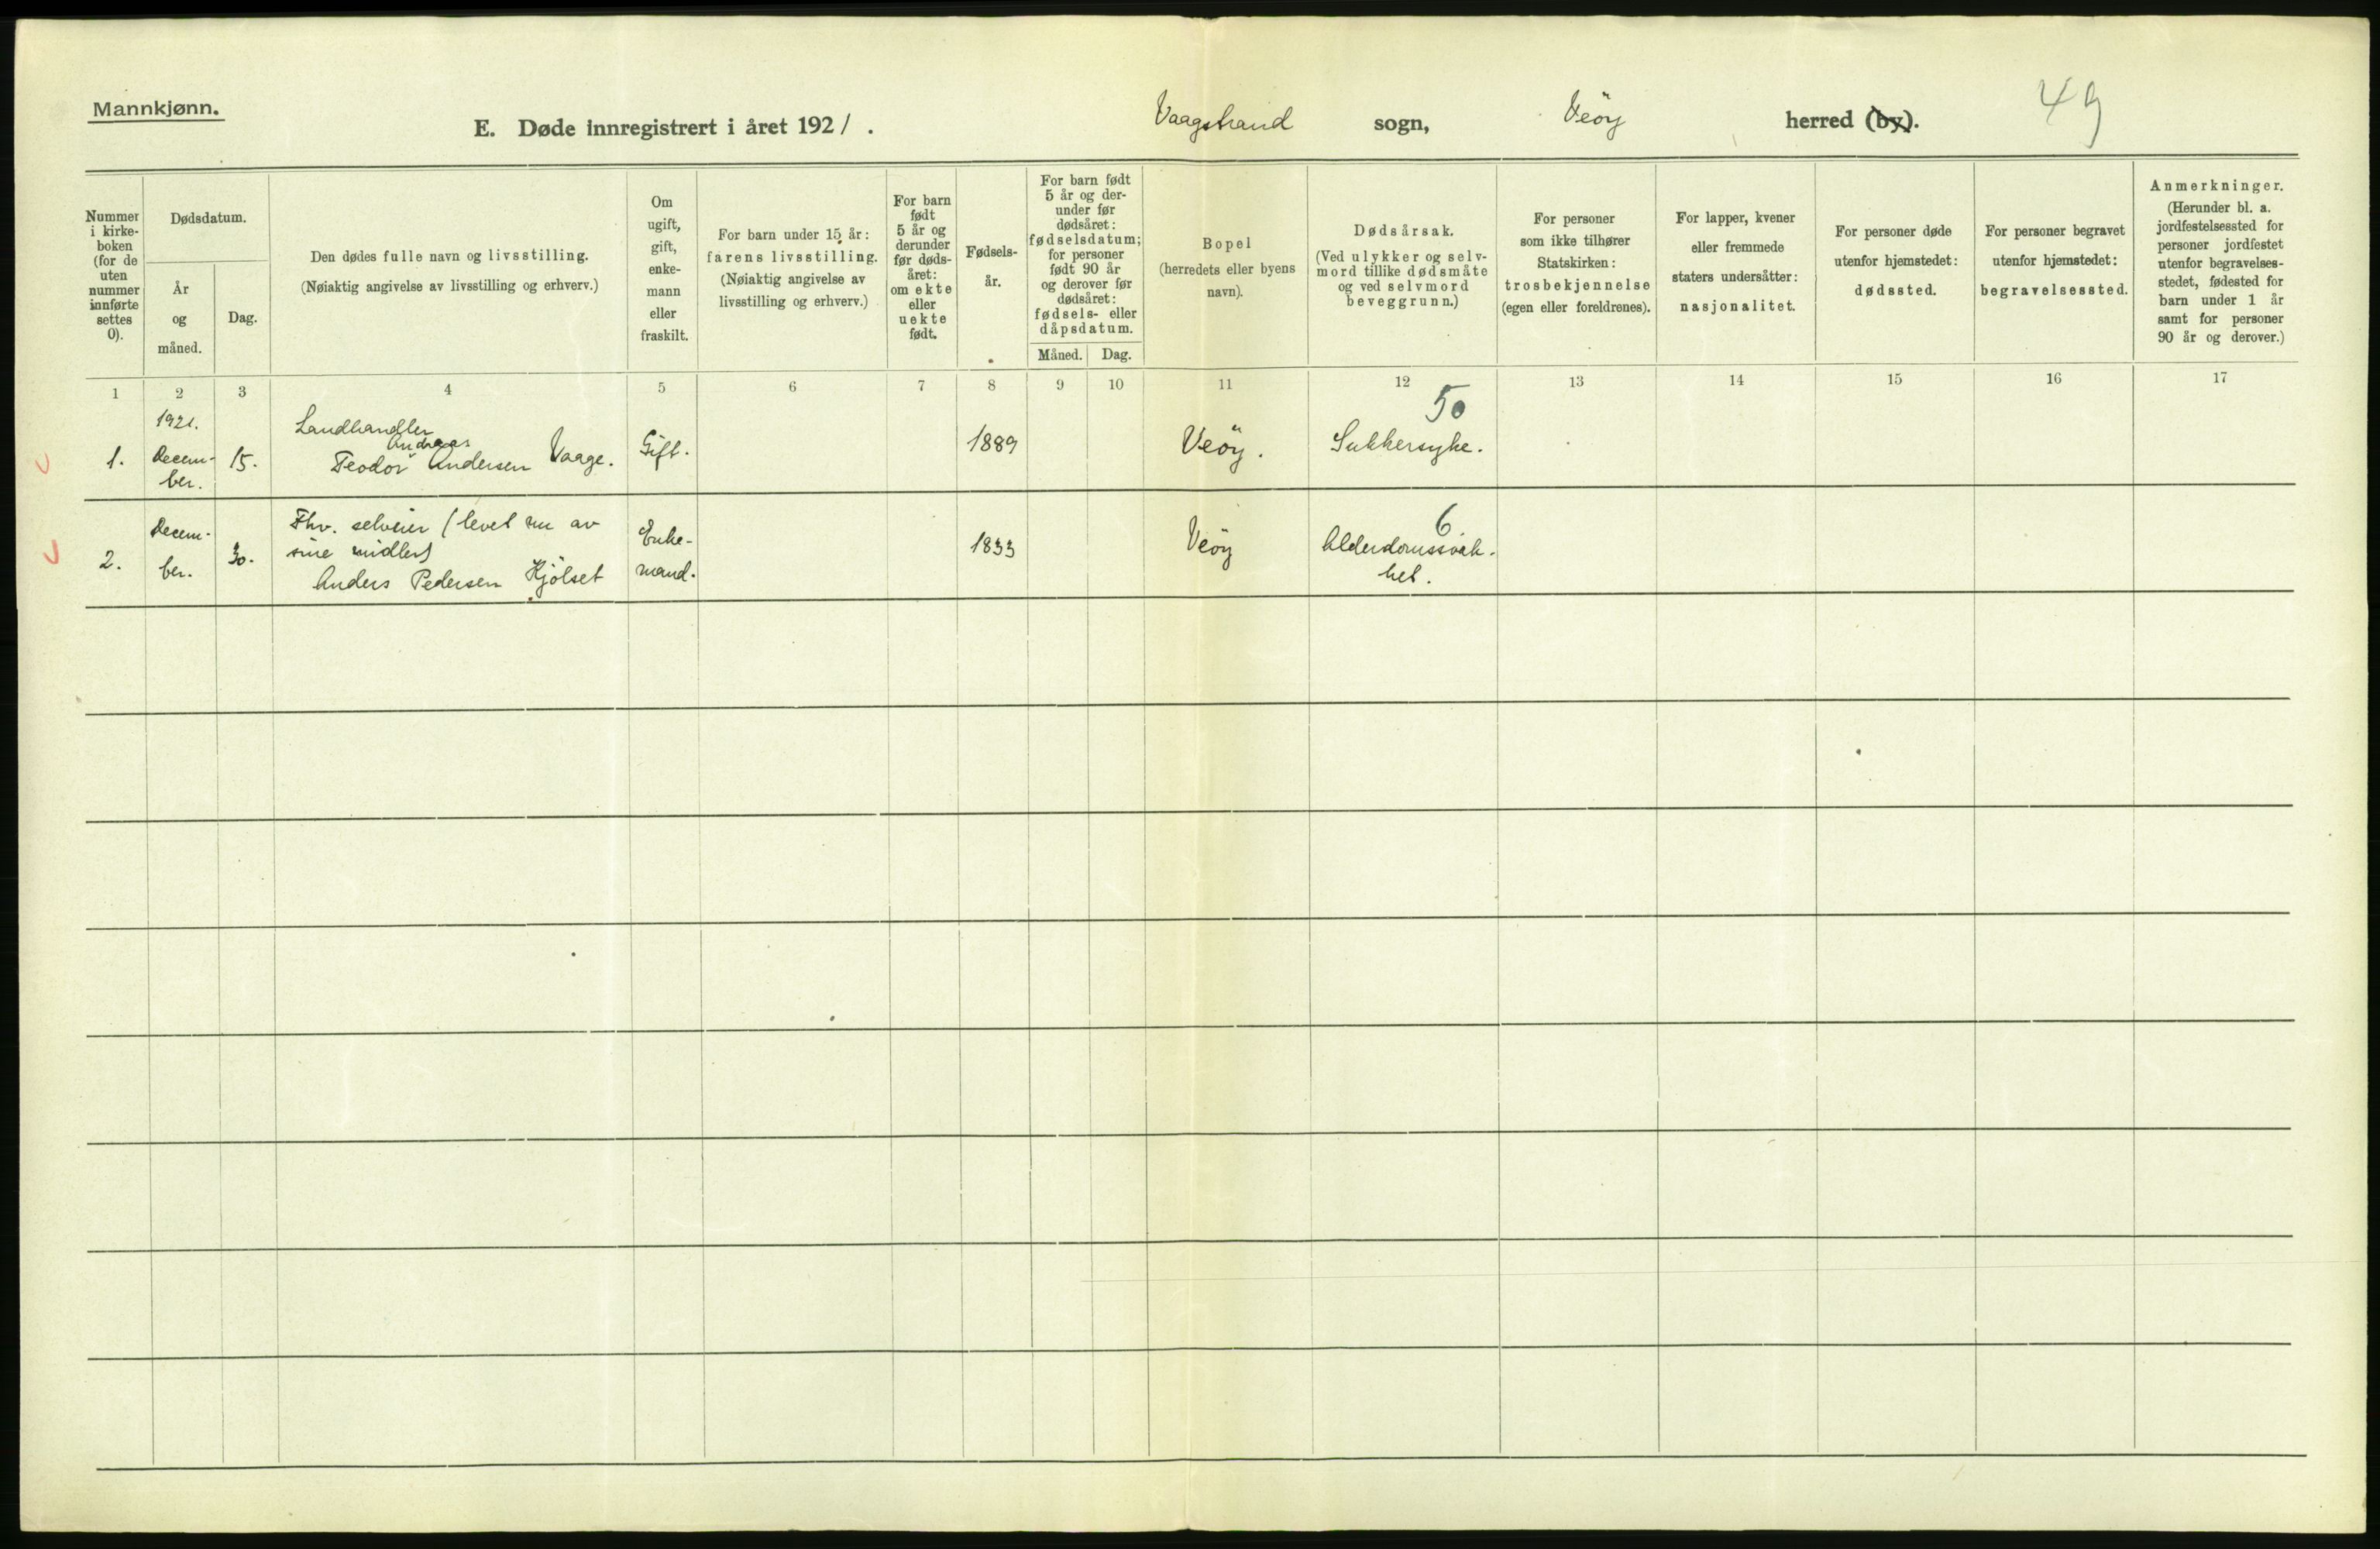 Mannkjønn.
E. Døde innregistrert i året 1921.
Vaagstrand sogn, Veöy herred (by).
49
Nummer i kirke-boken (for de uten nummer innførte settes 0).
Dødsdatum.
År og måned.
Dag.
Den dødes fulle navn og livsstilling.
(Nøiaktig angivelse av livsstilling og erhverv.)
Om ugift, gift, enke-mann eller fraskilt.
For barn under 15 år: farens livsstilling.
(Nøiaktig angivelse av livsstilling og erhverv.)
For barn født 5 år og derunder før døds-året: om ekte eller uekte født.
Fødsels-år.
For barn født 5 år og der-under før dødsåret: fødselsdatum; for personer født 90 år og derover før dødsåret: fødsels- eller dåpsdatum.
Måned. Dag.
Bopel (herredets eller byens navn).
Dødsårsak.
(Ved ulykker og selv-mord tillike dødsmåte og ved selvmord beveggrunn.)
For personer som ikke tilhører Statskirken: trosbekjennelse (egen eller foreldrenes).
For lapper, kvener eller fremmede staters undersåtter: nasjonalitet.
For personer døde utenfor hjemstedet: dødssted.
For personer begravet utenfor hjemstedet: begravelsessted.
Anmerkninger.
(Herunder bl. a. jordfestelsessted for personer jordfestet utenfor begravelses-stedet, fødested for barn under 1 år samt for personer 90 år og derover.)
1 2 3 4 5 6 7 8 9 10 11 12 13 14 15 16 17
1921.
50
1. Decem-ber. 15. Landhandler
Andreas
Teodor Andersen Vaage. Gift. 1889 Veöy. Sukkersyke.
6
2. Decem-ber. 30. Fhv. selveier (levet nu av
sine midler)
Anders Pedersen Hjölset Enke-mand. 1833 Veöy Alderdomssvak-het.